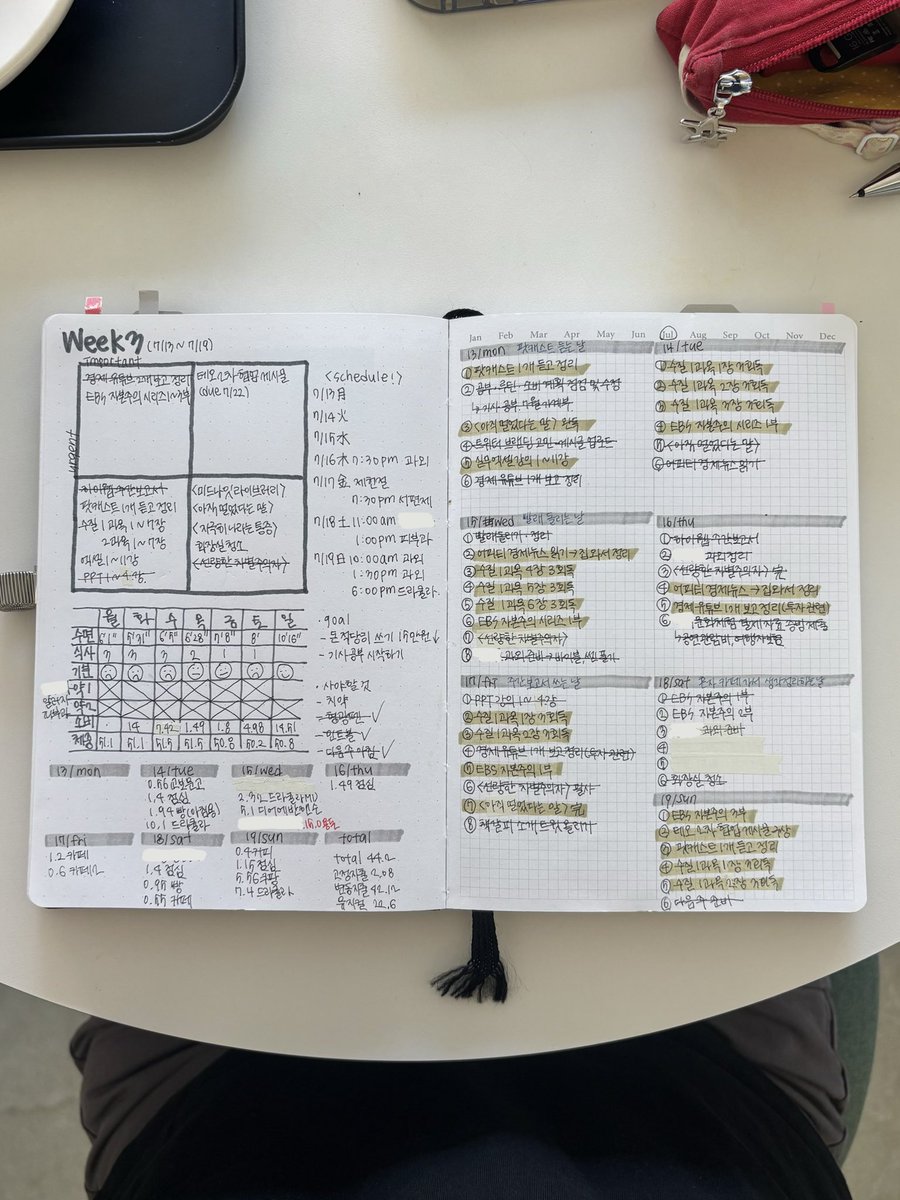 Week3 (7/13~7/19)
Important
경제 유튜브 2개 보고 정리
EBS 자본주의 시리즈 1~3부
테오 2차 협업 게시물
(due 7/22)
하이웹 주간보고서
팟캐스트 1개 듣고 정리
수질 1과목 1~7장
2과목 1~7장
엑셀 1~11강
PPT 1~4강
<미드나잇 라이브러리>
<아직 멀었다는 말>
<지극히 나라는 통증>
화장실 청소
<선량한 차별주의자>
<Schedule!>
7/13 月
7/14 火
7/15 水
7/16 木 7:30pm 과외
7/17 金 제헌절
7:30pm 서편제
7/18 土 11:00am
1:00pm 피부과
7/19 日 10:00am 과외
1:30pm 과외
6:00pm 드라큘라
월 화 수 목 금 토 일
수면 6'1" 5'31" 6'5" 6'28" 7'8" 8' 10'16"
식사 3 3 3 2 1 1
기분
약1
약2
소비 · 14 7.42 1.49 1.8 4.98 14.51
체중 51.1 51.1 51.5 51.5 50.8 50.2 50.8
goal
- 돈 적당히 쓰기 15만원↓
- 기사 공부 시작하기
· 사야할 것
- 치약
- 형광펜
- 인트볼
- 다음주 아침
13/mon
14/tue
0.56 교보문고
1.4 점심
1.94 빵(아침용)
10.1 드라큘라
15/wed
2.32 드라큘라MD
5.1 디어에반핸슨
16/thu
1.49 점심
17/fri
1.2 카페
0.6 카페2
18/sat
1.4 점심
0.95 빵
0.55 카페
19/sun
0.4 커피
1.15 점심
5.56 쿠팡
7.4 드라큘라
total
total 44.2
고정지출 2.08
변동지출 42.12
뮤지컬 22.6
Jan Feb Mar Apr May Jun Jul Aug Sep Oct Nov Dec
13/mon 팟캐스트 듣는 날
① 팟캐스트 1개 듣고 정리
② 공부 루틴·소비 계획 점검 및 수정
↳ 기사 공부, 7월 가계부
③ <아직 멀었다는 말> 완독
④ 트위터 브랜딩 고민·게시글 업로드
⑤ 실무엑셀 강의 1~11강
⑥ 경제 유튜브 1개 보고 정리
14/tue
① 수질 1과목 1장 3회독
② 수질 1과목 2장 3회독
③ 수질 1과목 3장 3회독
④ EBS 자본주의 시리즈 1부
⑤ <아직 멀었다는 말>
⑥ 어피티 경제뉴스 읽기
15/wed 빨래 돌리는 날
① 빨래 돌리기·정리
② 어피티 경제뉴스 읽기 → 집 와서 정리
③ 수질 1과목 4장 3회독
④ 수질 1과목 5장 3회독
⑤ 수질 1과목 6장 3회독
⑥ EBS 자본주의 시리즈 1부
⑦ <선량한 차별주의자>
⑧ 과외 준비 → 바이블, 쎈 풀기
16/thu
① 하이웹 주간보고서
② 과외 정리
③ <선량한 차별주의자> 完
④ 어피티 경제뉴스 → 집 와서 정리
⑤ 경제 유튜브 1개 보고 정리(투자 관련)
⑥ 문화체험 결제 자료 증빙 제출
↳ 공연관람비, 여행자보험
17/fri 주간보고서 쓰는 날
① PPT 강의 1~4강
② 수질 1과목 1장 3회독
③ 수질 1과목 2장 3회독
④ 경제 유튜브 1개 보고 정리(투자 관련)
⑤ EBS 자본주의 1부
⑥ <선량한 차별주의자> 필사
⑦ <아직 멀었다는 말> 完
⑧ 책갈피 소개 트윗 올리기
18/sat 혼자 카페 가서 생각정리하는 날
① EBS 자본주의 1부
② EBS 자본주의 2부
③ 과외 준비
④
⑤
⑥ 화장실 청소
19/sun
① EBS 자본주의 3부
② 테오 2차 협업 게시물 구상
③ 팟캐스트 1개 듣고 정리
④ 수질 1과목 1장 3회독
⑤ 수질 1과목 2장 3회독
⑥ 다음주 준비